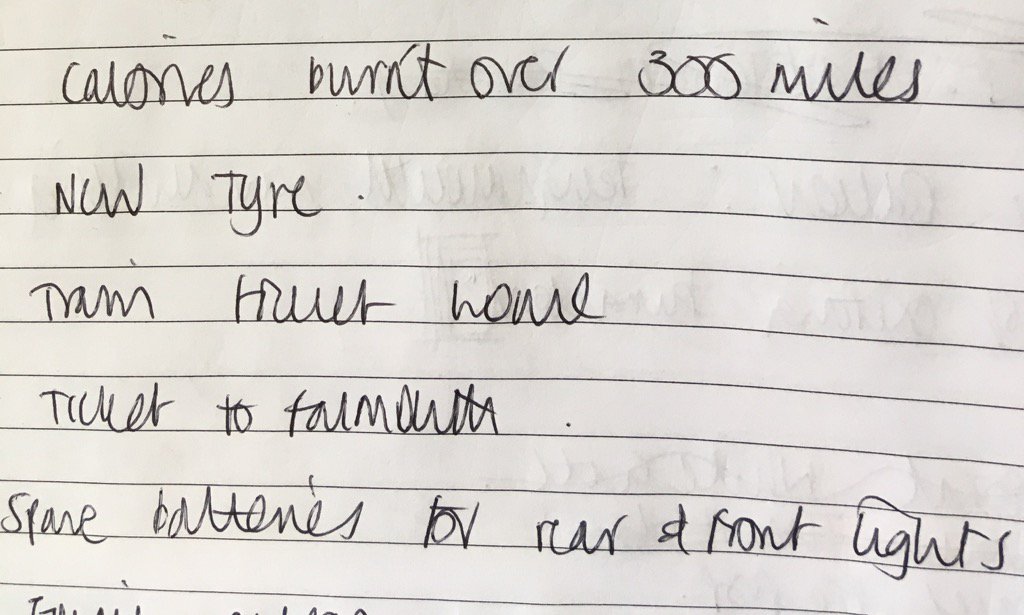 Calories burnt over 300 miles
New Tyre.
Train ticket home
Ticket to falmouth.
Spare batteries for rear & front lights